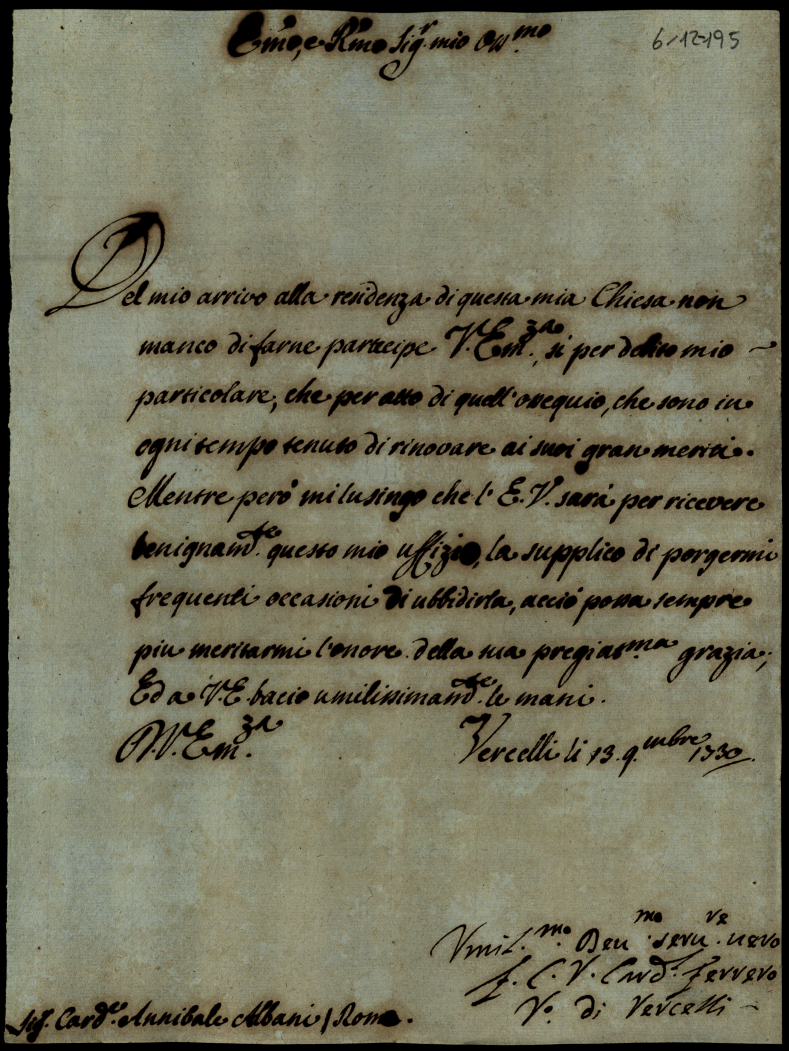 Em̃o, e Rm̃o Sig.r mio Oss.mo
6-12-195
Del mio arrivo alla residenza di questa mia Chiesa non
manco di farne partecipe V. Em.za, si per debito mio
particolare, che per atto di quell'ossequio, che sono in
ogni tempo tenuto di rinovare ai suoi gran meriti.
Mentre però mi lusingo che l'E. V. sarà per ricevere
benignam.te questo mio uffizio, la supplico di porgermi
frequenti occasioni di ubbidirla, acciò possa sempre
più meritarmi l'onore della sua pregiat.ma grazia;
Ed a V. E. bacio umilissimam.te le mani.
D. V. Em.za
Vercelli li 13. 9.mbre 1730.
Vmil.mo Deu.mo seru.ve uero
f. C. V. Card. Ferrero
V.o di Vercelli
Sig. Card.le Annibale Albani / Roma.